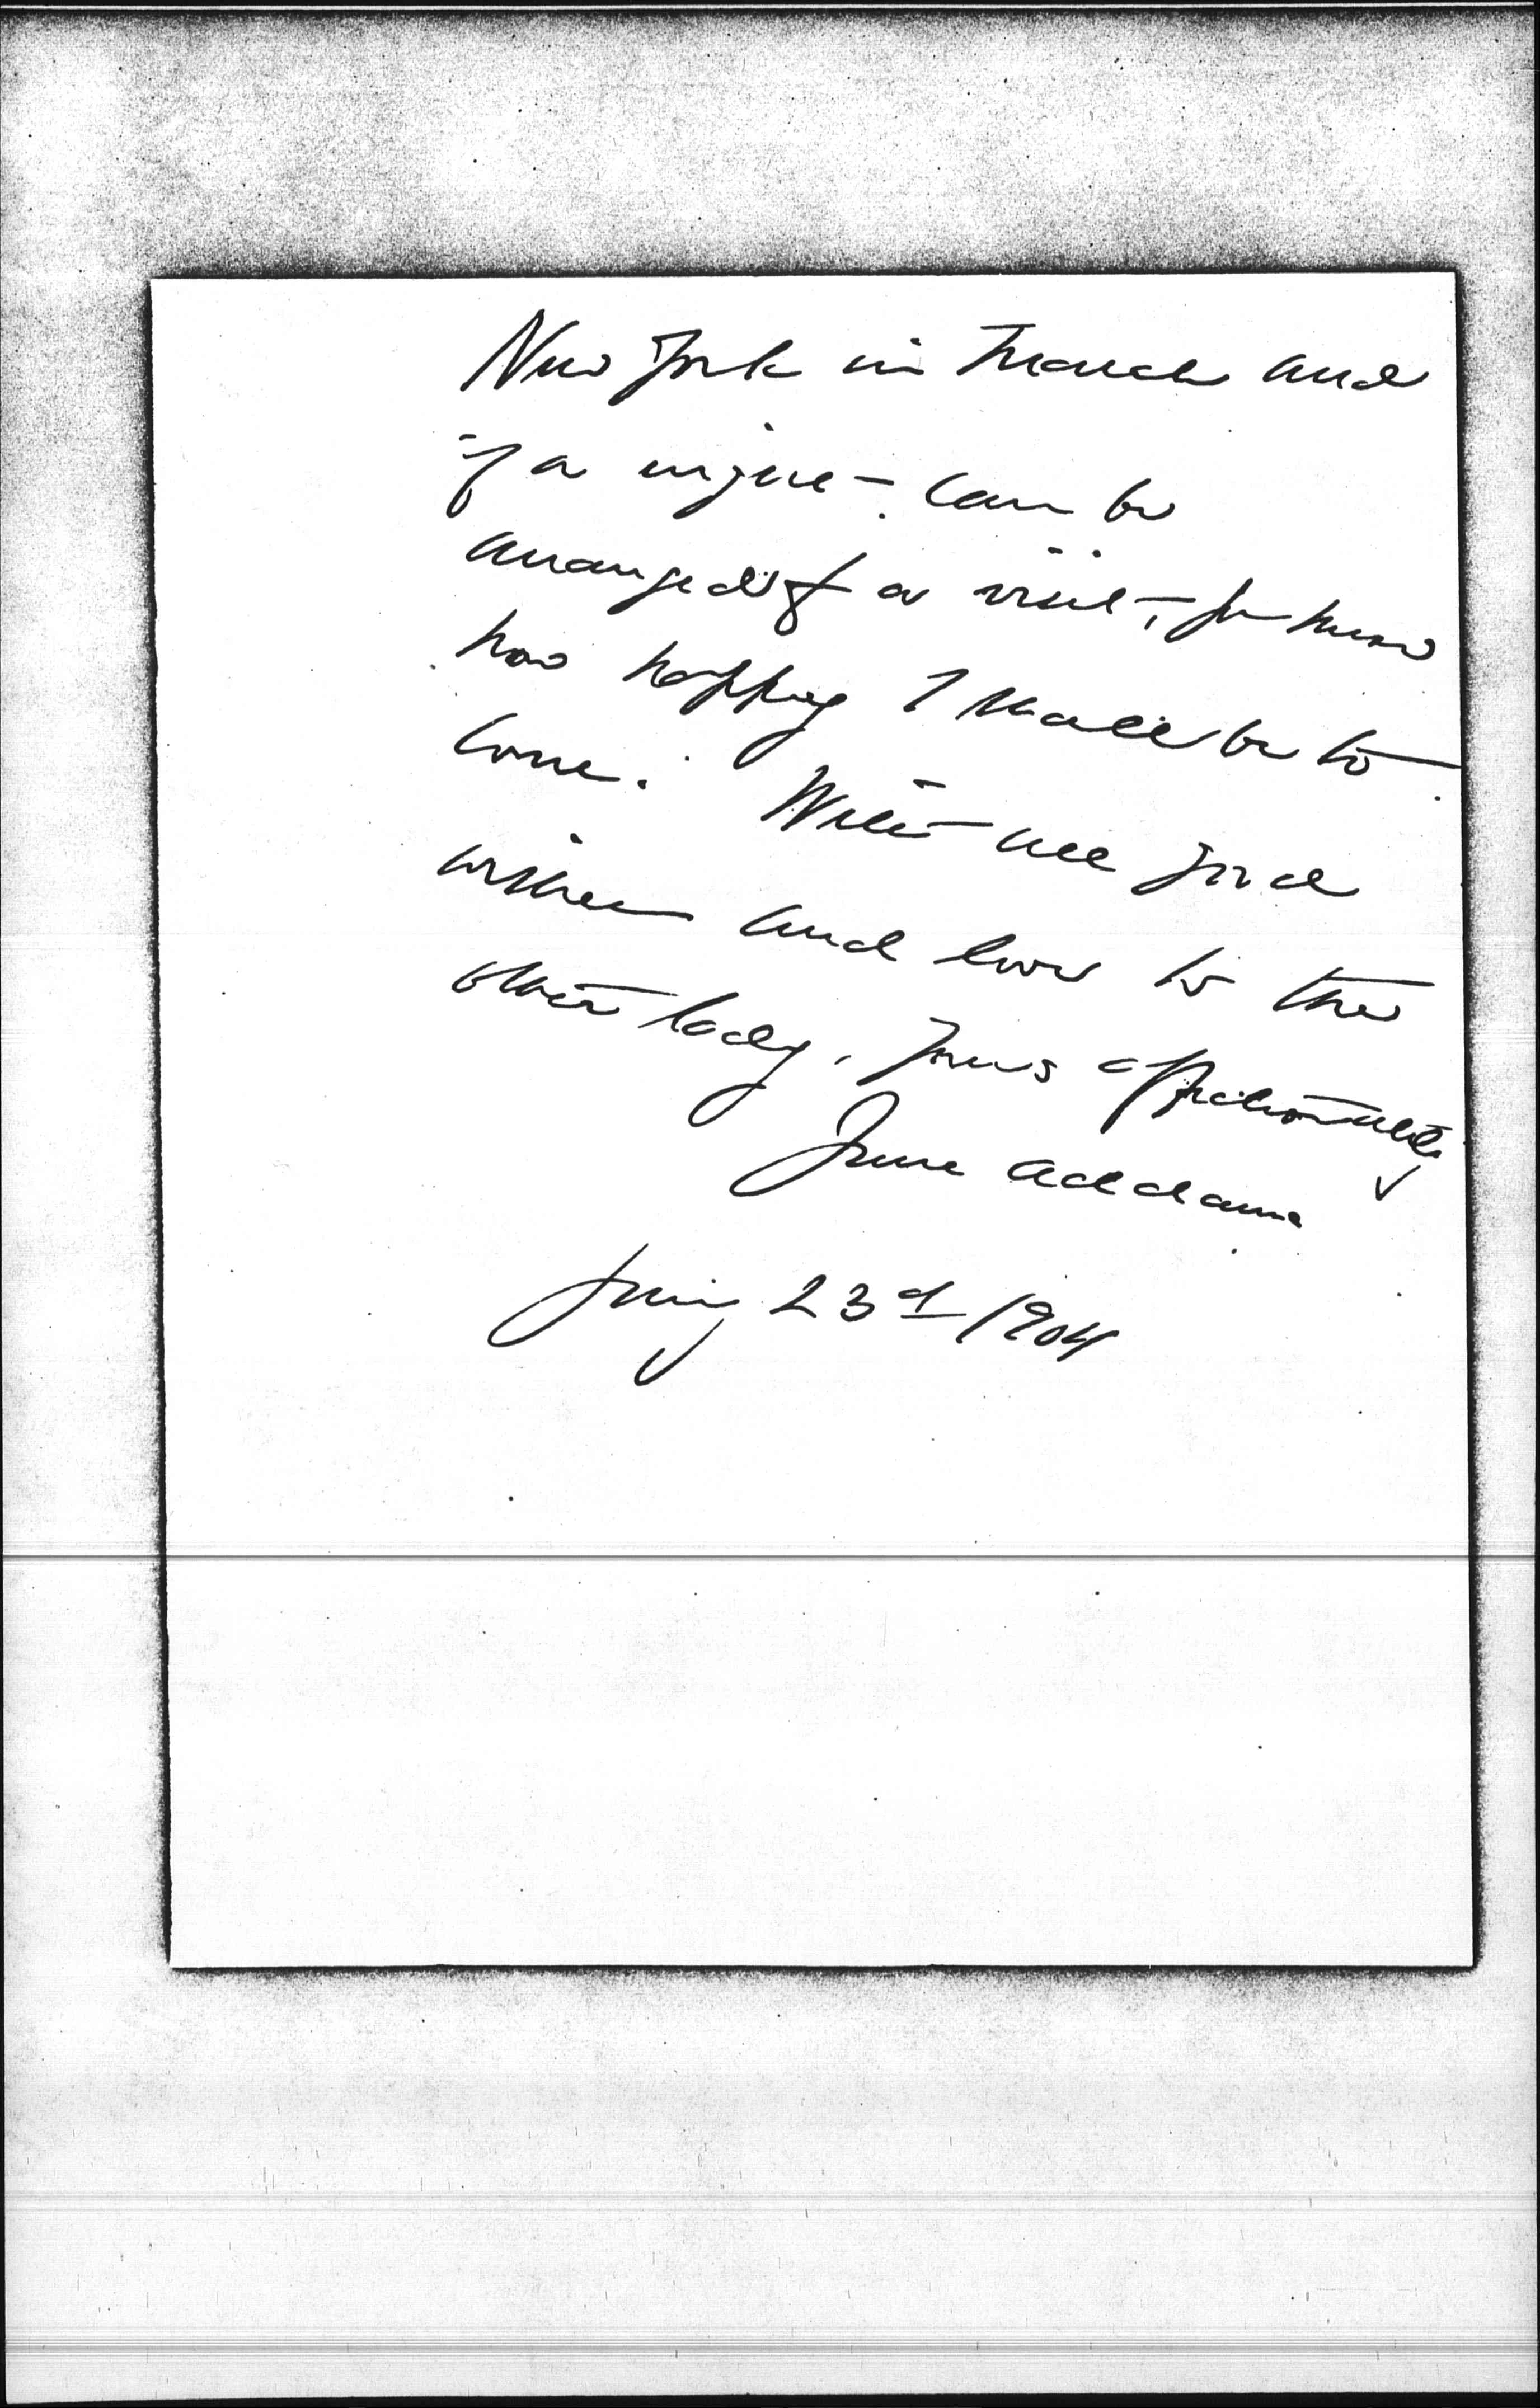 New York in March and
if a night can be
arranged for a visit, you know
how happy I shall be to
come. With all good
wishes and love to the
other lady, Yours affectionately
Jane Addams
23d 1904